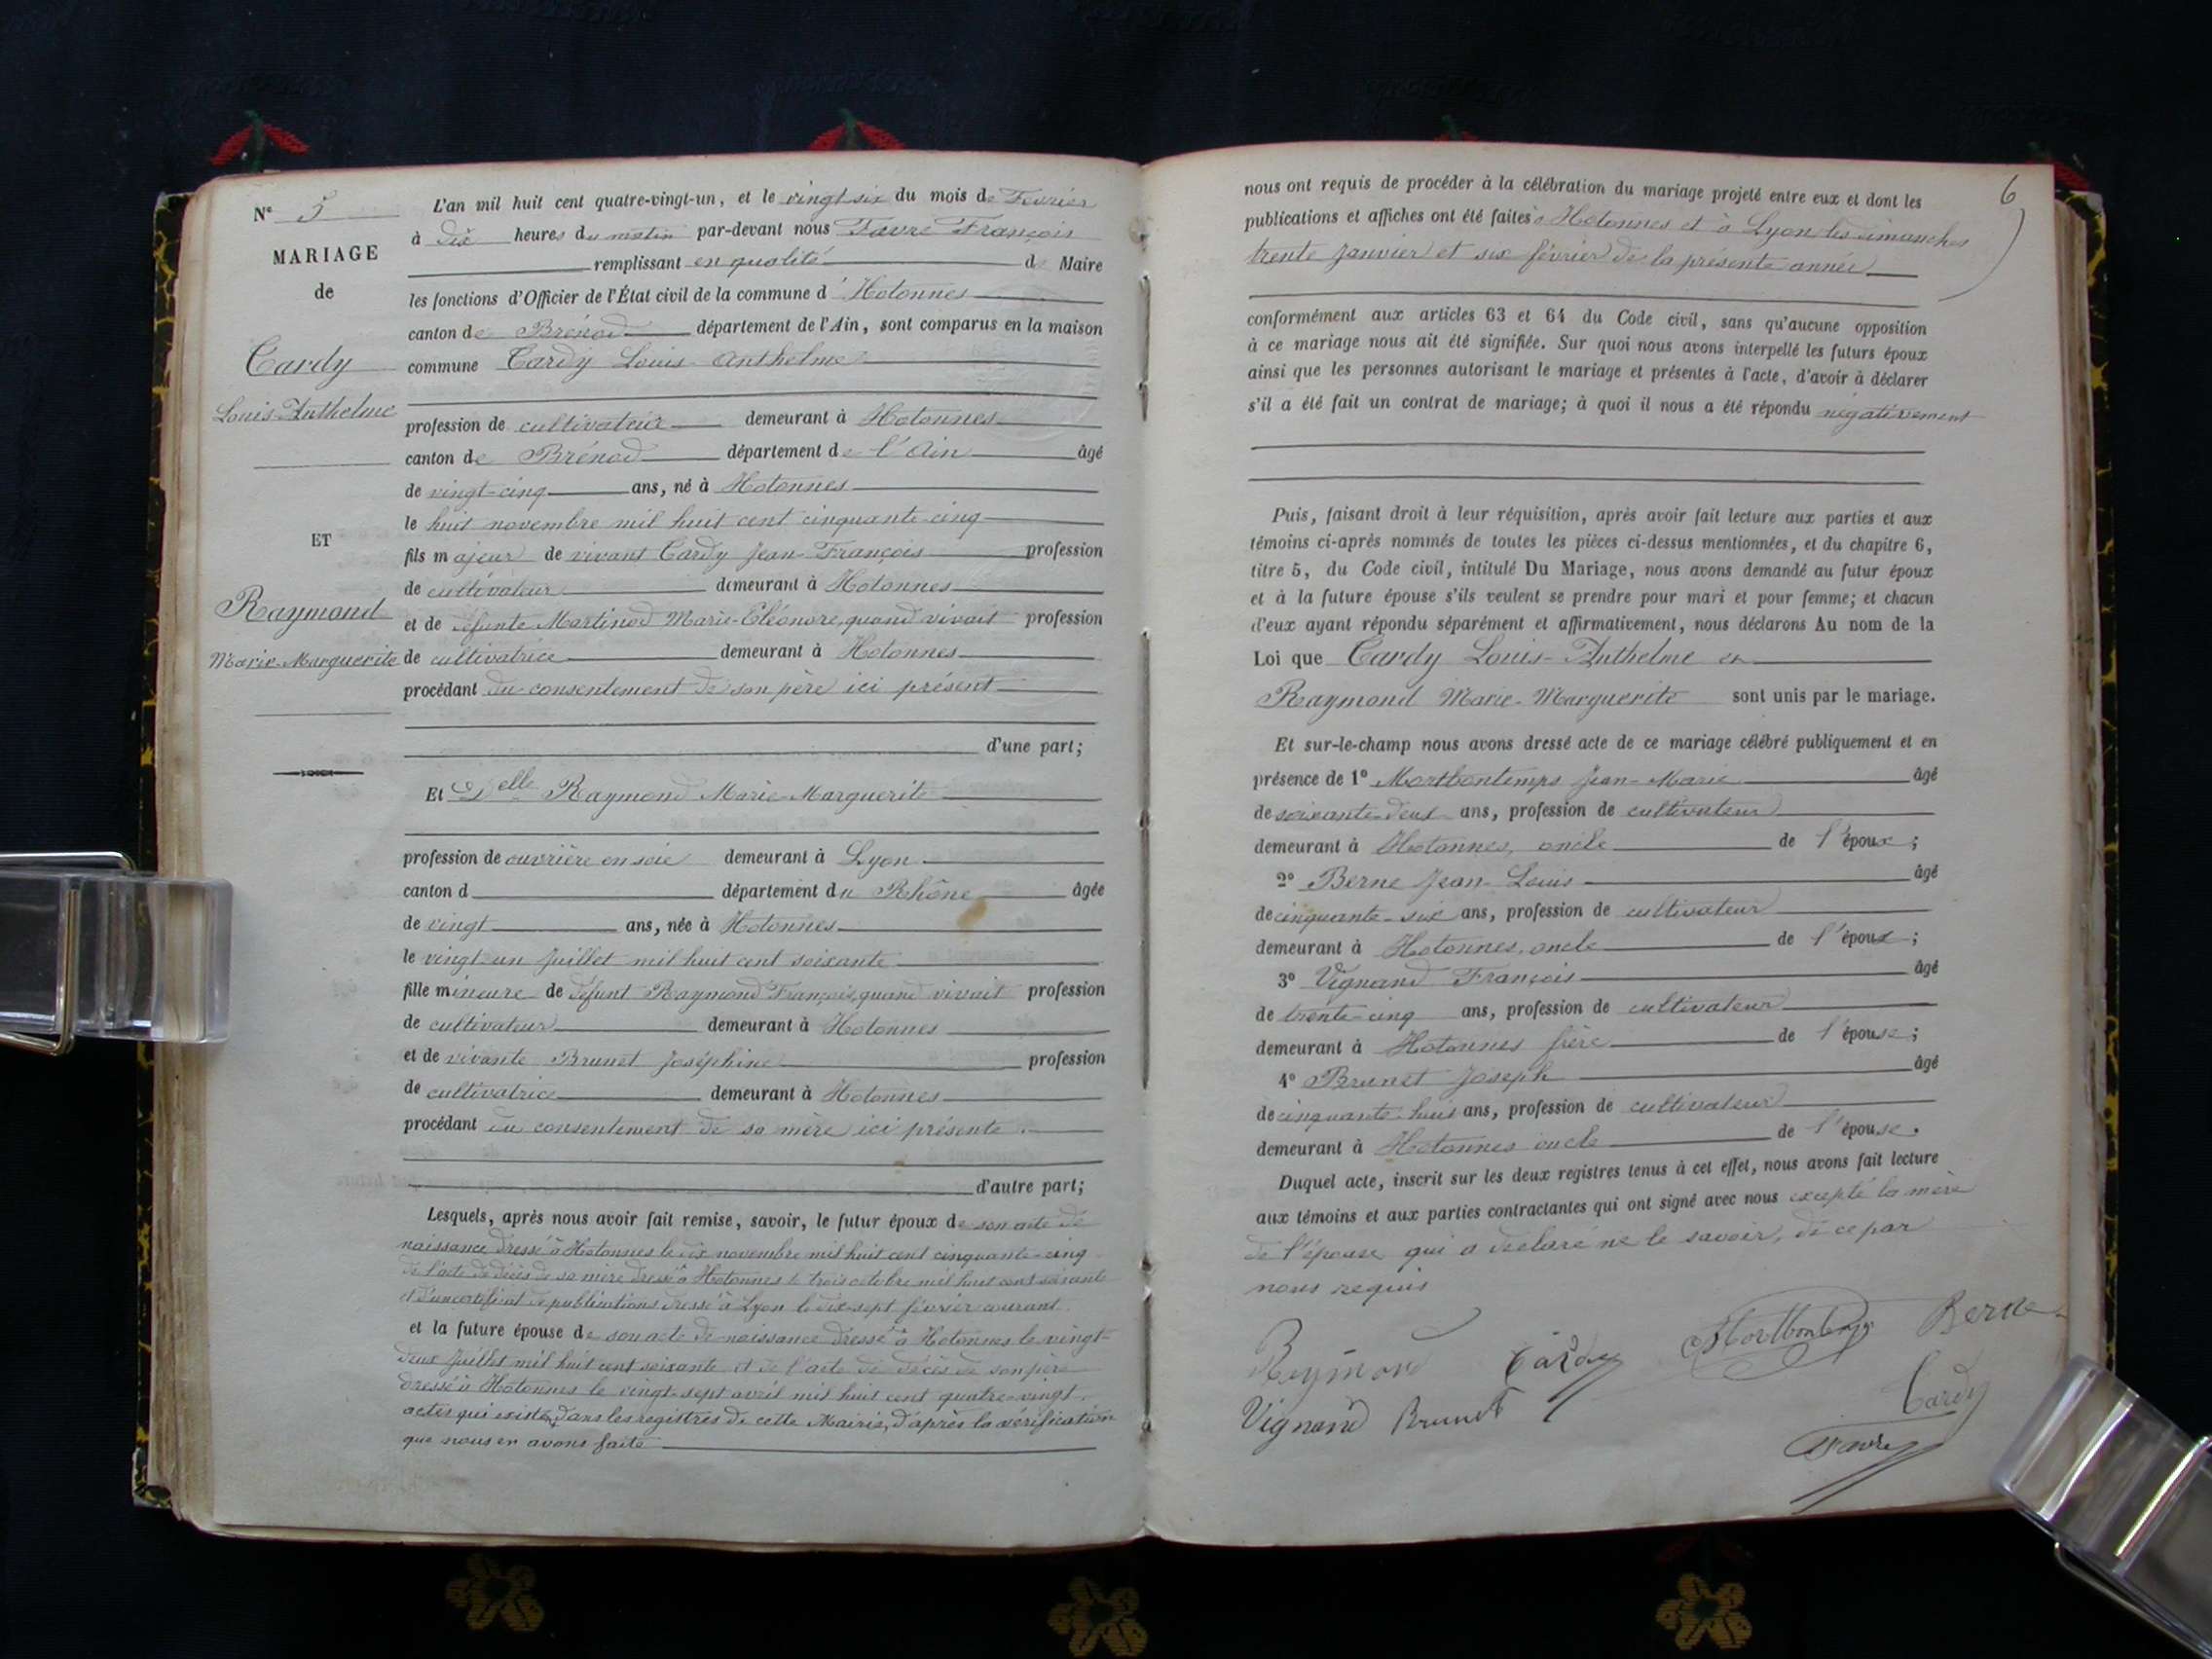 N° 5
MARIAGE
de
Cardy
Louis-Anthelme
ET
Raymond
Marie-Marguerite
L'an mil huit cent quatre-vingt-un, et le vingt six du mois de Février
à dix heures du matin par-devant nous Favre François
remplissant en qualité de Maire
les fonctions d'Officier de l'État civil de la commune d'Hotonnes
canton de Brénod département de l'Ain, sont comparus en la maison
commune Cardy Louis-Anthelme
profession de cultivateur demeurant à Hotonnes
canton de Brénod département de l'Ain âgé
de vingt-cinq ans, né à Hotonnes
le huit novembre mil huit cent cinquante-cinq
fils majeur de vivant Cardy Jean-François profession
de cultivateur demeurant à Hotonnes
et de défunte Martinod Marie-Eléonore, quand vivait profession
de cultivatrice demeurant à Hotonnes
procédant du consentement de son père ici présent
d'une part;
Et Delle Raymond Marie-Marguerite
profession de ouvrière en soie demeurant à Lyon
canton d département du Rhône âgée
de vingt ans, née à Hotonnes
le vingt-un Juillet mil huit cent soixante
fille mineure de défunt Raymond François, quand vivait profession
de cultivateur demeurant à Hotonnes
et de vivante Brunet Joséphine profession
de cultivatrice demeurant à Hotonnes
procédant du consentement de sa mère ici présente.
d'autre part;
Lesquels, après nous avoir fait remise, savoir, le futur époux de son acte de
naissance dressé à Hotonnes le dix novembre mil huit cent cinquante-cinq
de l'acte de décès de sa mère dressé à Hotonnes le trois octobre mil huit cent soixante
et d'un certificat de publications dressé à Lyon le dix-sept février courant.
et la future épouse de son acte de naissance dressé à Hotonnes le vingt-
deux Juillet mil huit cent soixante et de l'acte de décès de son père
dressé à Hotonnes le vingt-sept avril mil huit cent quatre-vingt.
actes qui existent dans les registres de cette Mairie, d'après la vérification
que nous en avons faite
6
nous ont requis de procéder à la célébration du mariage projeté entre eux et dont les
publications et affiches ont été faites à Hotonnes et à Lyon, les dimanches
trente Janvier et six février de la présente année
conformément aux articles 63 et 64 du Code civil, sans qu'aucune opposition
à ce mariage nous ait été signifiée. Sur quoi nous avons interpellé les futurs époux
ainsi que les personnes autorisant le mariage et présentes à l'acte, d'avoir à déclarer
s'il a été fait un contrat de mariage; à quoi il nous a été répondu négativement
Puis, faisant droit à leur réquisition, après avoir fait lecture aux parties et aux
témoins ci-après nommés de toutes les pièces ci-dessus mentionnées, et du chapitre 6,
titre 5, du Code civil, intitulé Du Mariage, nous avons demandé au futur époux
et à la future épouse s'ils veulent se prendre pour mari et pour femme; et chacun
d'eux ayant répondu séparément et affirmativement, nous déclarons Au nom de la
Loi que Cardy Louis-Anthelme et
Raymond Marie-Marguerite sont unis par le mariage.
Et sur-le-champ nous avons dressé acte de ce mariage célébré publiquement et en
présence de 1° Mortbontemps Jean-Marie âgé
de soixante-deux ans, profession de cultivateur
demeurant à Hotonnes, oncle de l'époux;
2° Berne Jean-Louis âgé
de cinquante-six ans, profession de cultivateur
demeurant à Hotonnes, oncle de l'époux;
3° Vignand François âgé
de trente-cinq ans, profession de cultivateur
demeurant à Hotonnes frère de l'épouse;
4° Brunet Joseph âgé
de cinquante-huit ans, profession de cultivateur
demeurant à Hotonnes oncle de l'épouse.
Duquel acte, inscrit sur les deux registres tenus à cet effet, nous avons fait lecture
aux témoins et aux parties contractantes qui ont signé avec nous excepté la mère
de l'épouse qui a déclaré ne le savoir, de ce par
nous requis
Reymond Cardy Mortbontemps Berne
Vignand Brunet Cardy
Favre